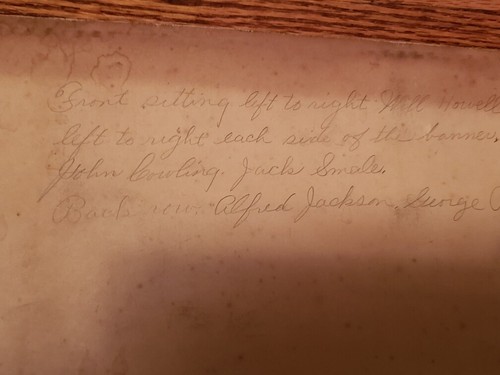 Front sitting left to right Will Howell
left to right each side of the banner.
John Cowling. Jack Smale.
Back row. Alfred Jackson, George